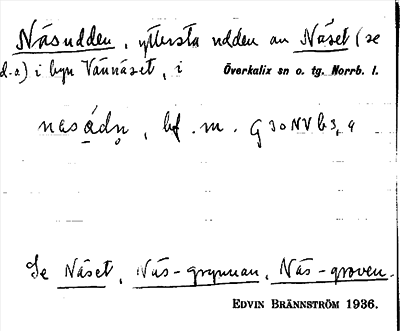 Näsudden, yttersta udden av Näset (se
d.o) i byn Vännäset, i Överkalix sn o. tg. Norrb. l.
nasádn, bf. m. G30NVb3,9
Se Näset, Näs-grynnan, Näs-groven.
EDVIN BRÄNNSTRÖM 1936.